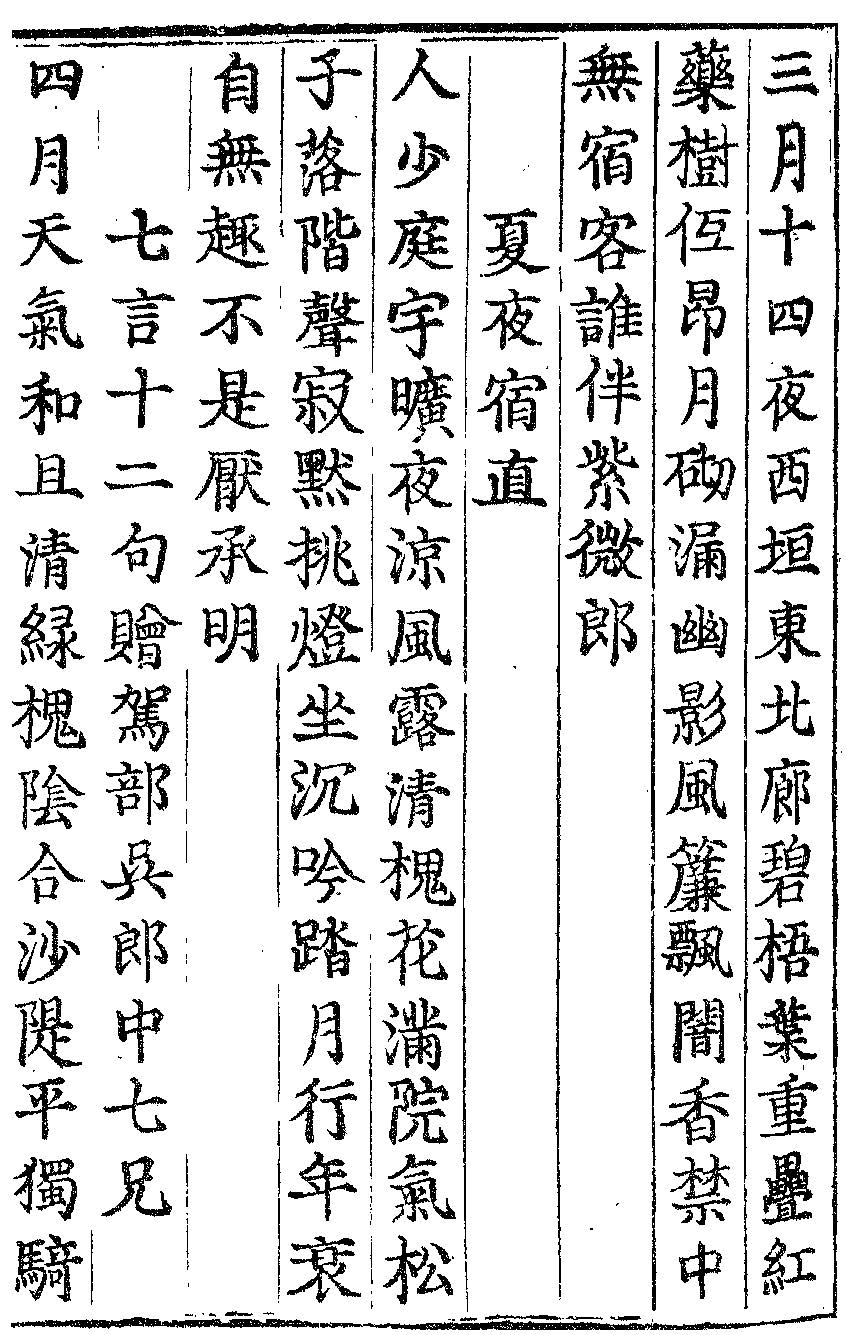 三月十四夜西垣東北廊碧梧葉重疊紅
藥樹仾昂月砌漏幽影風簾飄闇香禁中
無宿客誰伴紫微郎
夏夜宿直
人少庭宇曠夜涼風露清槐花滿院氣松
子落階聲寂默挑燈坐沉吟踏月行年衰
自無趣不是厭承明
七言十二句贈駕部吳郎中七兄
四月天氣和且清緑槐陰合沙隄平獨騎